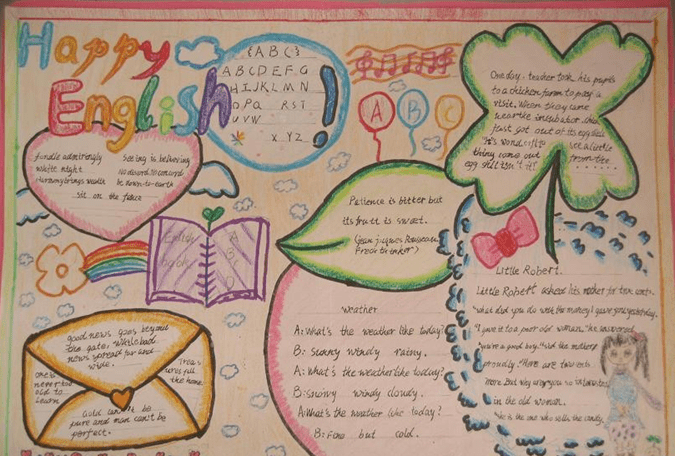 Happy
English!
{A B C}
A B C D E F G
H I J K L M N
O P Q R S T
U V W
X Y Z
A B C
One day. teacher took his pupils
to a chicken farm to pay a
visit. When they
just got out of its
thing come out
Seeing is believing
white night
down-to-earth
sit on the fence
English
book
A
B
Patience is bitter but
its fruit is sweet.
good news goes beyond
the gate, while bad
news spread far and
wide.
one is
never too
old to
learn
Treas
ures fill
the home.
Gold can't be
pure and man can't be
perfect.
weather
A: What's the weather like today?
B: Sunny windy rainy.
A: What's the weather like today?
B: Snowy windy cloudy.
A: What's the weather like today?
B: Fine but cold.
Little Robert.
Little Robert asked his mother for two cents.
"What did you do with the money I gave you yesterday.
"I gave it to a poor old woman," he answered
"you're a good boy," said the mother
proudly. "Here are two cents
more. But why are you so interested
in the old woman.
"She is the one who sells the candy.